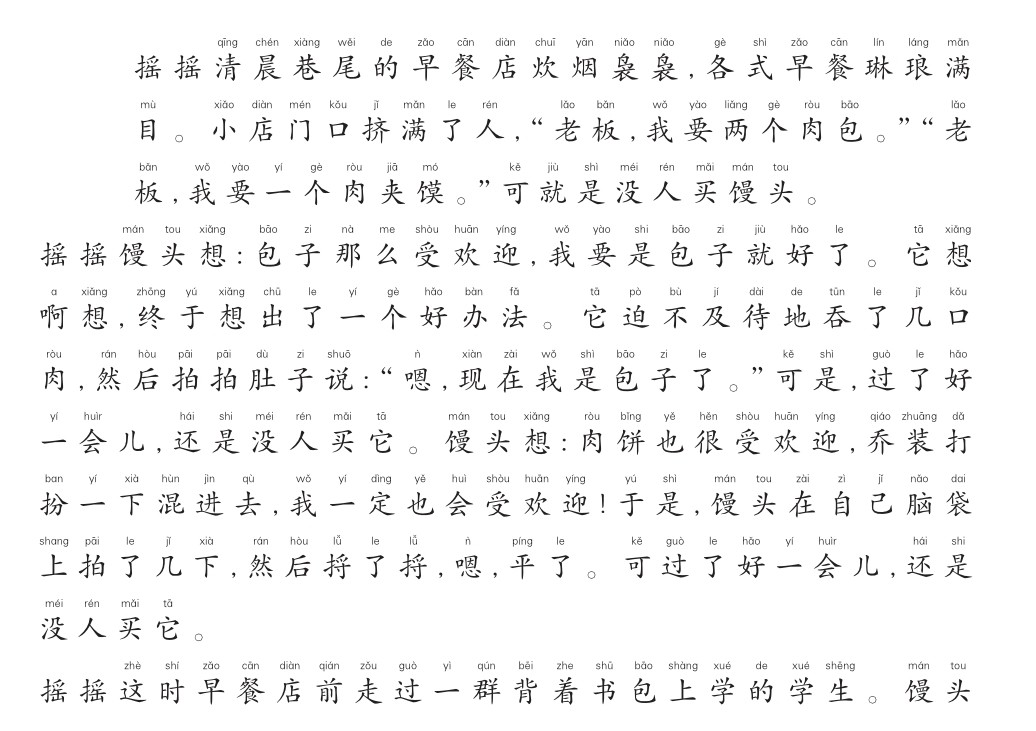 qīng chén xiàng wěi de zǎo cān diàn chuī yān niǎo niǎo gè shì zǎo cān lín láng mǎn
摇摇清晨巷尾的早餐店炊烟袅袅,各式早餐琳琅满
mù xiǎo diàn mén kǒu jǐ mǎn le rén lǎo bǎn wǒ yào liǎng gè ròu bāo lǎo
目。小店门口挤满了人,“老板,我要两个肉包。”“老
bǎn wǒ yào yí gè ròu jiā mó kě jiù shì méi rén mǎi mán tou
板,我要一个肉夹馍。”可就是没人买馒头。
mán tou xiǎng bāo zi nà me shòu huān yíng wǒ yào shi bāo zi jiù hǎo le tā xiǎng
摇摇馒头想:包子那么受欢迎,我要是包子就好了。它想
a xiǎng zhōng yú xiǎng chū le yí gè hǎo bàn fǎ tā pò bù jí dài de tūn le jǐ kǒu
啊想,终于想出了一个好办法。它迫不及待地吞了几口
ròu rán hòu pāi pāi dù zi shuō ǹ xiàn zài wǒ shì bāo zi le kě shì guò le hǎo
肉,然后拍拍肚子说:“嗯,现在我是包子了。”可是,过了好
yí huìr hái shi méi rén mǎi tā mán tou xiǎng ròu bǐng yě hěn shòu huān yíng qiáo zhuāng dǎ
一会儿,还是没人买它。馒头想:肉饼也很受欢迎,乔装打
ban yí xià hùn jìn qù wǒ yí dìng yě huì shòu huān yíng yú shì mán tou zài zì jǐ nǎo dai
扮一下混进去,我一定也会受欢迎!于是,馒头在自己脑袋
shang pāi le jǐ xià rán hòu lǚ le lǚ ǹ píng le kě guò le hǎo yí huìr hái shi
上拍了几下,然后捋了捋,嗯,平了。可过了好一会儿,还是
méi rén mǎi tā
没人买它。
zhè shí zǎo cān diàn qián zǒu guò yì qún bēi zhe shū bāo shàng xué de xué shēng mán tou
摇摇这时早餐店前走过一群背着书包上学的学生。馒头